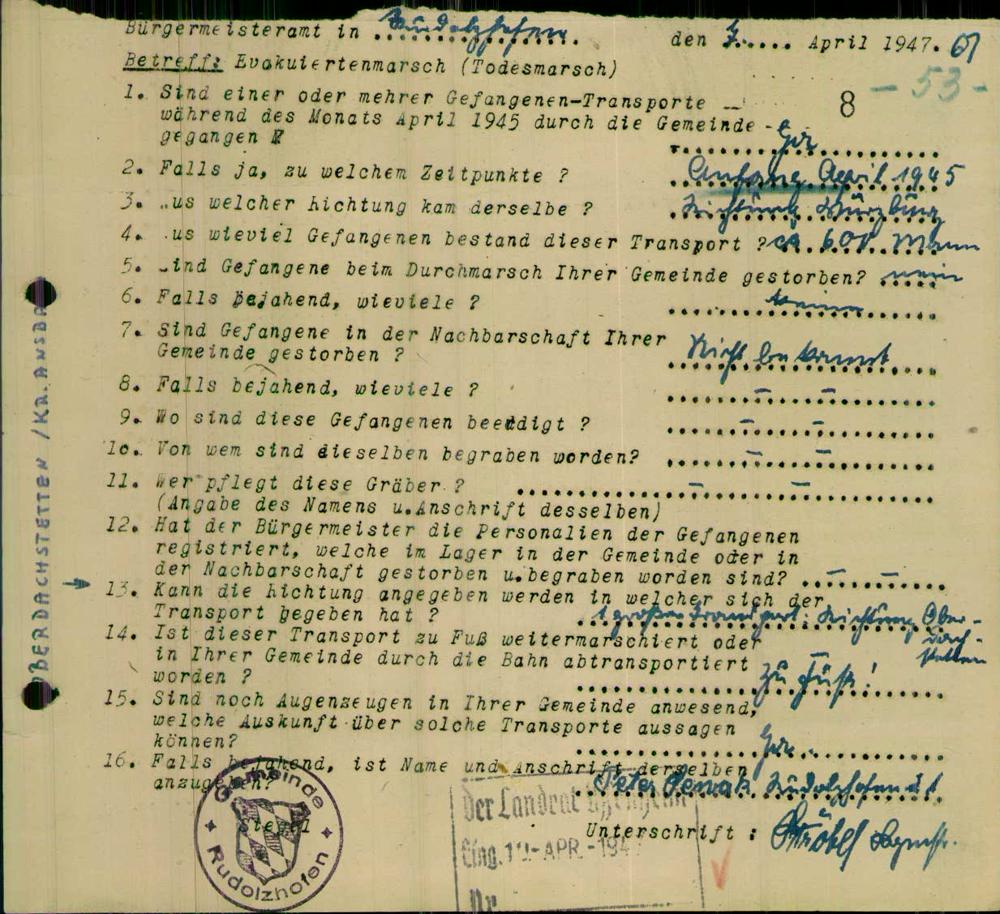 Bürgermeisteramt in Rudolzhofen. den 7. April 1947.
Betreff: Evakuiertenmarsch (Todesmarsch)
8 - 53 -
1. Sind einer oder mehrer Gefangenen-Transporte
während des Monats April 1945 durch die Gemeinde
gegangen ? Ja
2. Falls ja, zu welchem Zeitpunkte ? Anfang April 1945
3. us welcher Richtung kam derselbe ? Richtung Würzburg
4. us wieviel Gefangenen bestand dieser Transport ? ca. 600 Mann
5. ind Gefangene beim Durchmarsch Ihrer Gemeinde gestorben? nein
6. Falls bejahend, wieviele ? keiner
7. Sind Gefangene in der Nachbarschaft Ihrer
Gemeinde gestorben ? Nicht bekannt
8. Falls bejahend, wieviele ? – –
9. Wo sind diese Gefangenen beerdigt ? – –
1o. Von wem sind dieselben begraben worden? – –
11. Wer pflegt diese Gräber ? – –
(Angabe des Namens u.Anschrift desselben)
12. Hat der Bürgermeister die Personalien der Gefangenen
registriert, welche im Lager in der Gemeinde oder in
der Nachbarschaft gestorben u.begraben worden sind? – –
13. Kann die Richtung angegeben werden in welcher sich der
Transport begeben hat ? 1 großer Transport: Richtung Ober-
dach-
stetten
14. Ist dieser Transport zu Fuß weitermarschiert oder
in Ihrer Gemeinde durch die Bahn abtransportiert
worden ? zu Fuß!
15. Sind noch Augenzeugen in Ihrer Gemeinde anwesend,
welche Auskunft über solche Transporte aussagen
können? Ja.
16. Falls bejahend, ist Name und Anschrift derselben
anzugeben? Peter Rudolzhofen
Siegel
Unterschrift : Ströbel Bgmstr.
Gemeinde
Rudolzhofen
Der Landrat Uffenheim
Eing. APR. 194
Nr.
OBERDACHSTETTEN / KR. ANSBA